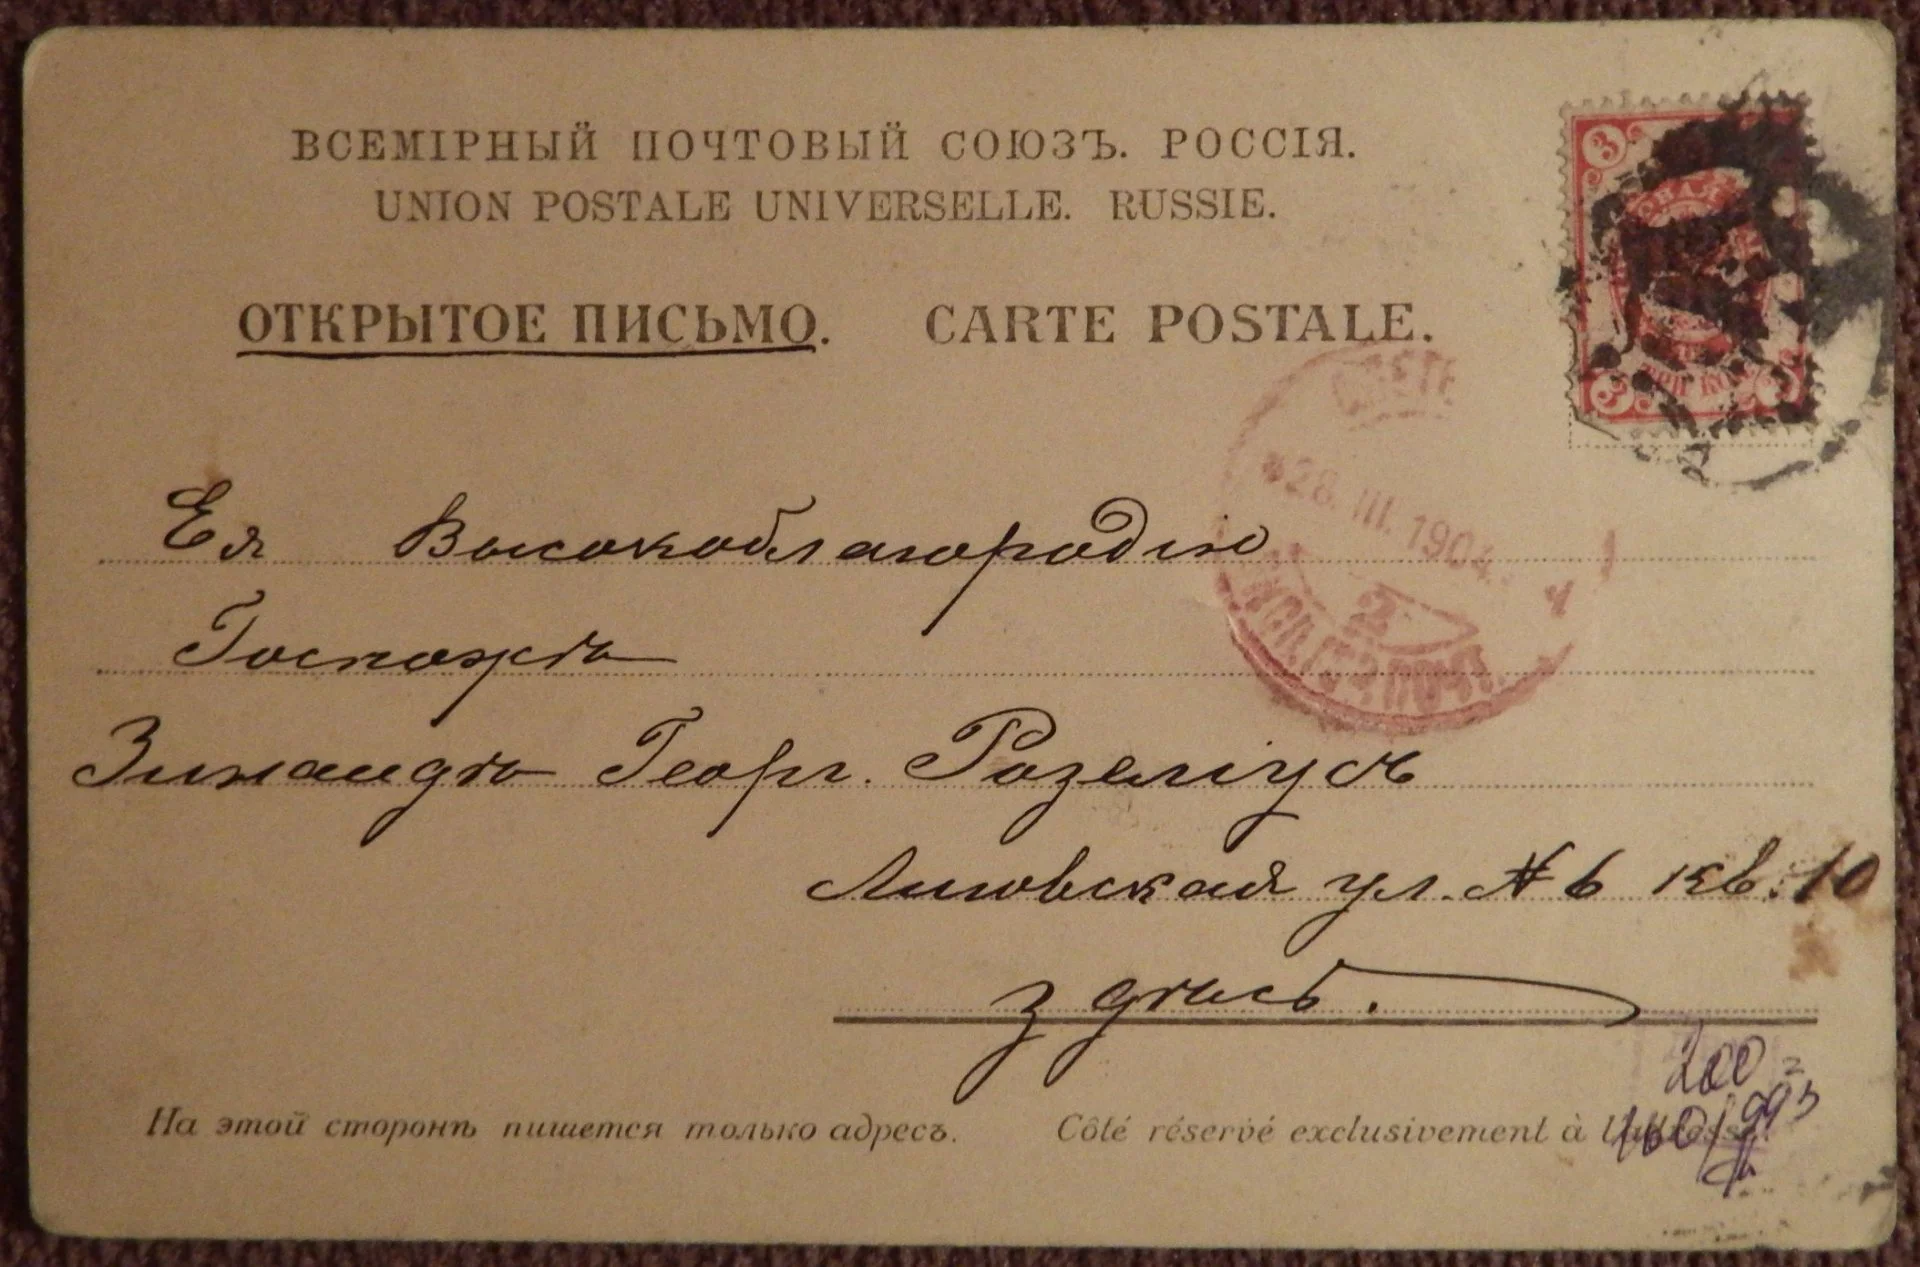 ВСЕМІРНЫЙ ПОЧТОВЫЙ СОЮЗЪ. РОССІЯ.
UNION POSTALE UNIVERSELLE. RUSSIE.
ОТКРЫТОЕ ПИСЬМО. CARTE POSTALE.
3
3 ТРИ КОП 3
28.III.1904
2
Ея Высокоблагородію
Госпожѣ
Зинаидѣ Георг. Розеліусъ
Лиговская ул. № 6 кв. 10
Здѣсь.
200
На этой сторонѣ пишется только адресъ. Côté réservé exclusivement à l'adresse.